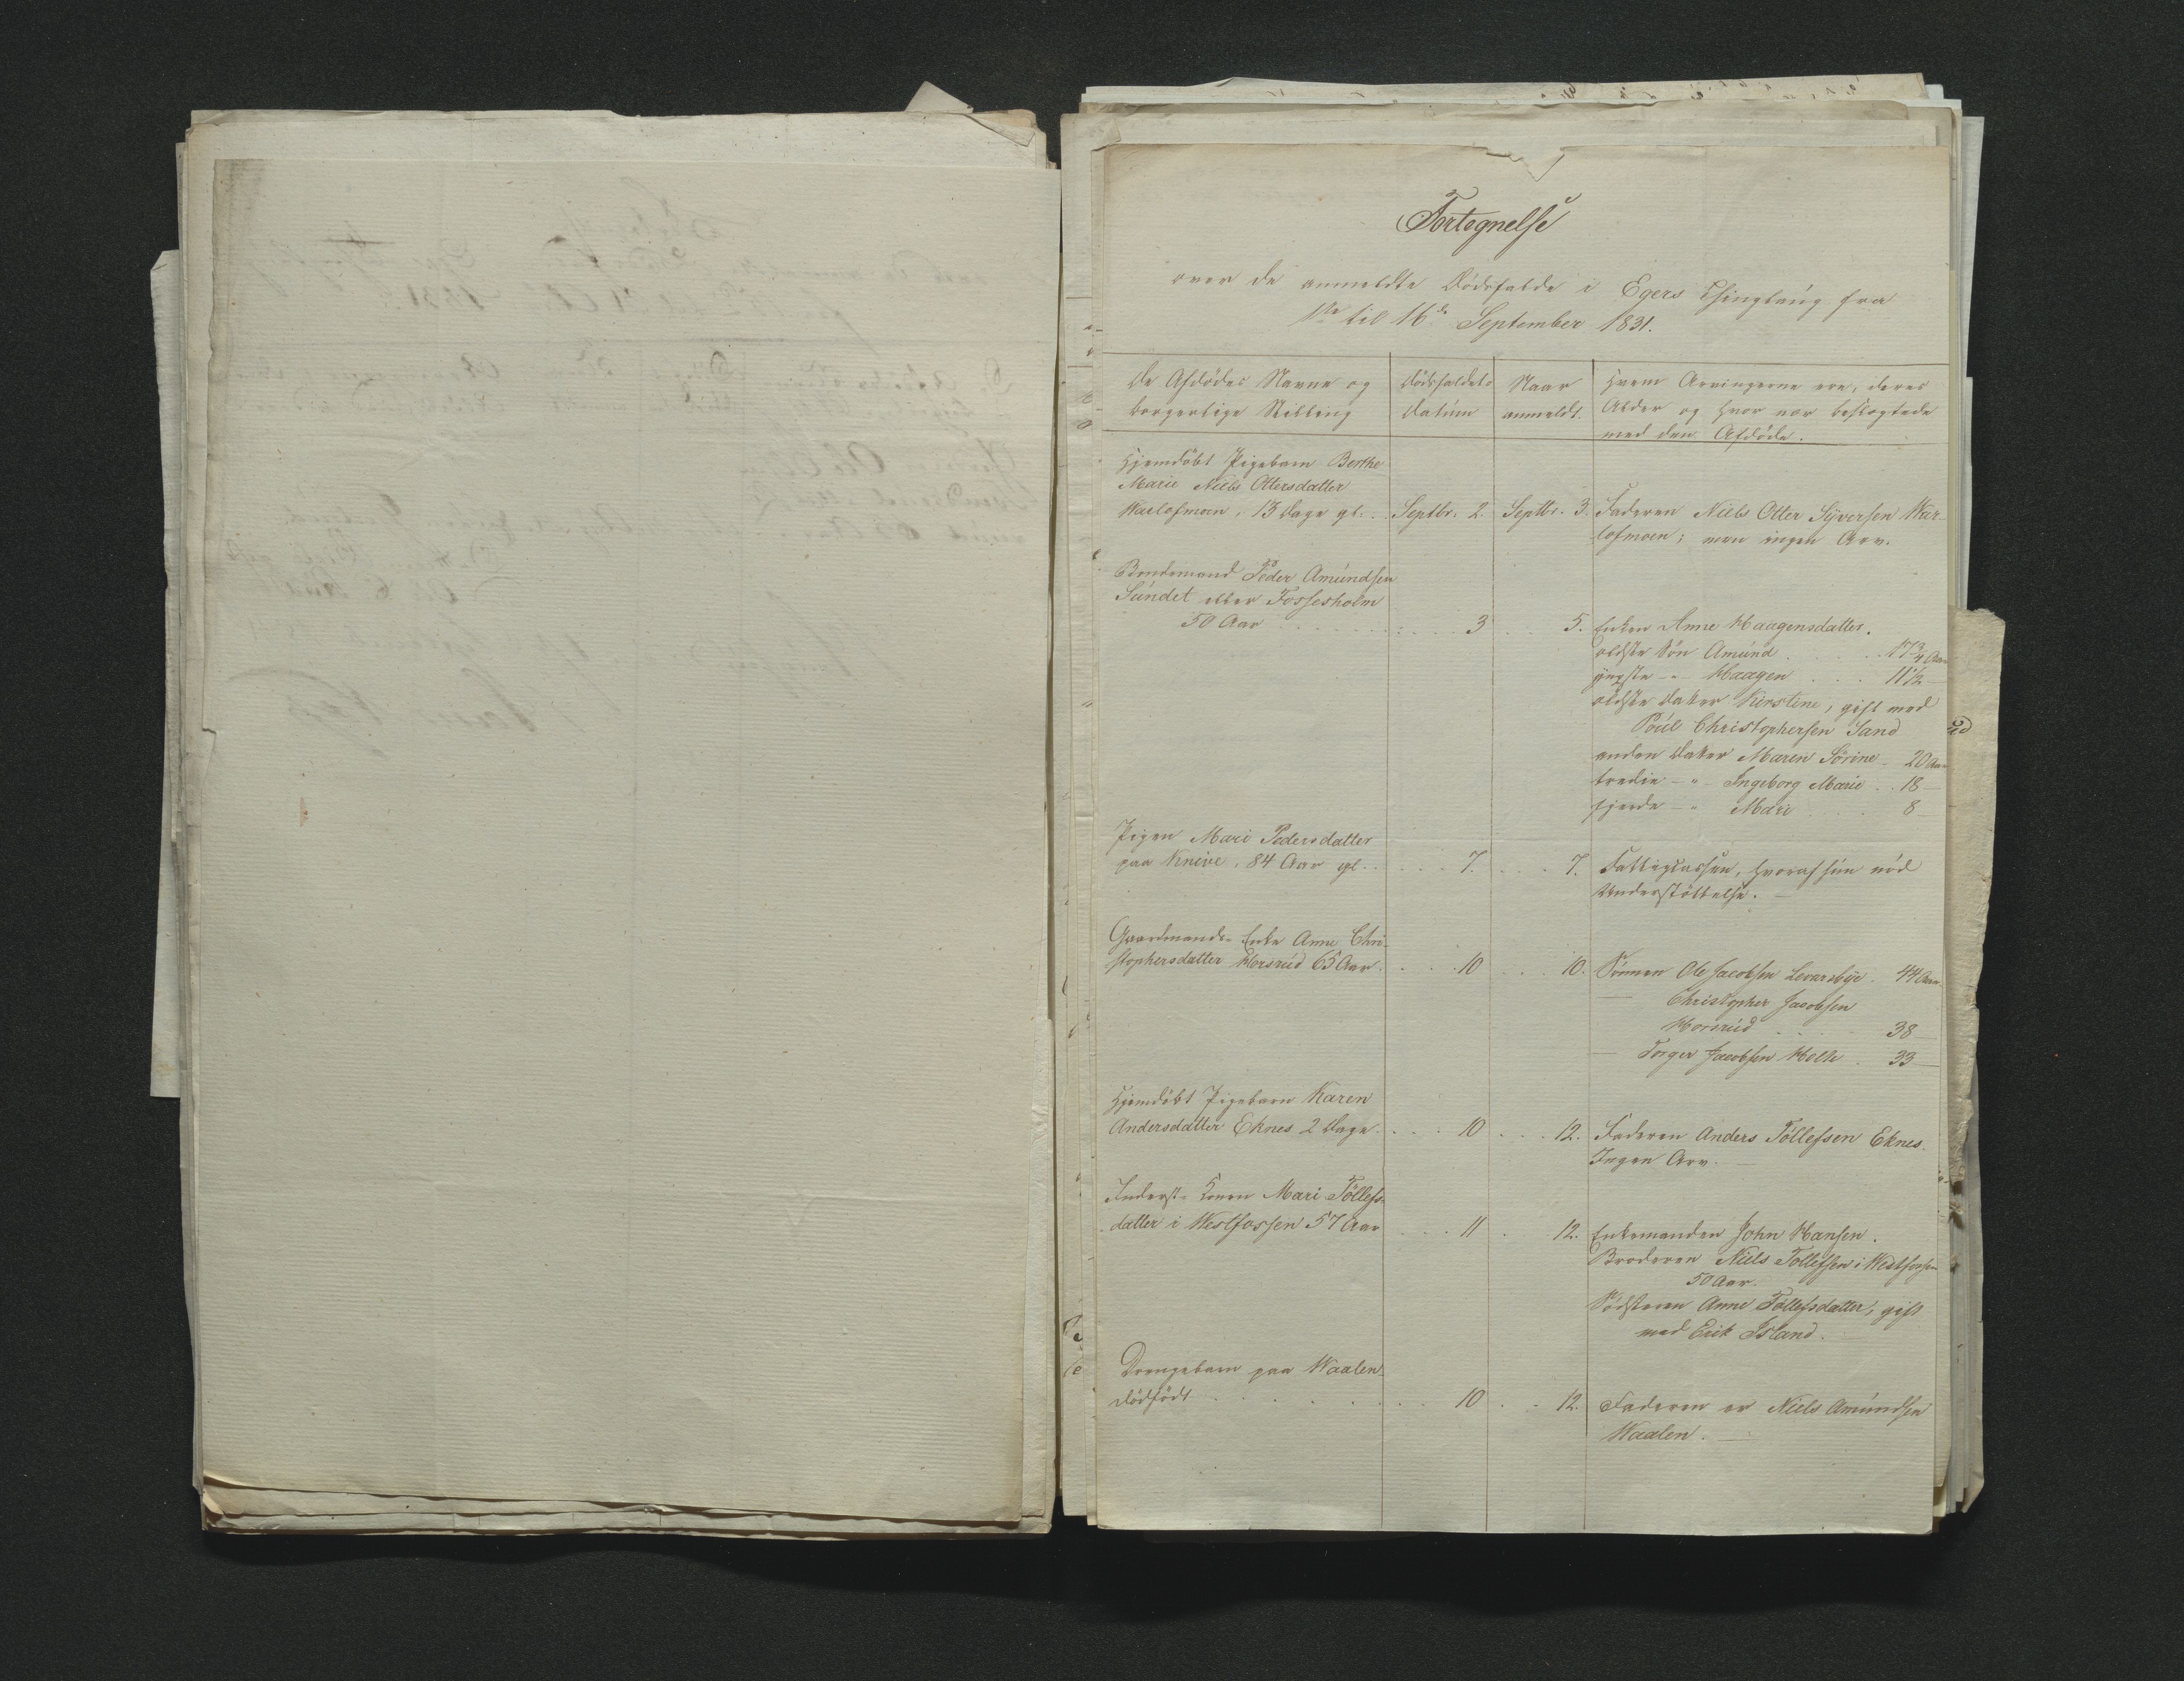 Fortegnelse
over de anmeldte Dödsfalde i Egers Thinglaug fra
1ste til 16de September 1831.
De Afdödes Navne og
borgerlige Stilling
Dödsfaldets
Datum
Naar
anmeldt.
Hvem Arvingerne ere, deres
Alder og hvor nær beslægtede
med den Afdöde.
Hjemdöbt Pigebarn Berthe
Marie Niels Ottersdatter
13 Dage gl. . Septbr. 2. Septbr. 3. Faderen Niels Otter Syversen
men ingen Arv.
Bondemand Peder Amundsen
Sundet eller Fossesholm
50 Aar . . . 3 . . 5. Enken Anne Haagensdatter.
ældste Sön Amund . . . 17¾ Aar
yngste -"- Haagen . . . 11½
ældste Datter Kirstine, gift med
Poul Christophersen Sand
anden Datter Maren Sörine . 20 Aar
tredie -"- Ingeborg Marie . . 18 -
fjerde -"- Mari . . . 8 -
Pigen Mari Pedersdatter
paa Knive, 84 Aar gl. . . . 7. . . . 7. Fattigcassen, hvoraf hun nöd
Understöttelse. -
Gaardmands Enke Anne Chri-
stophersdatter Horsrud 65 Aar . . . 10 . . . 10. Sönnen Ole Jacobsen . 44 Aar
- Christopher Jacobsen
Horsrud . . . 38 -
- Torger Jacobsen Holte . 33 -
Hjemdöbt Pigebarn Karen
Andersdatter Eknes 2 Dage . . . 10 . . . 12. Faderen Anders Töllefsen Eknes.
Ingen Arv. -
Inderst Konen Mari Töllefs-
datter i Westfossen 57 Aar . . . 11 . 12. Enkemanden John Hansen.
Broderen Niels Tollefsen i Westfossen
50 Aar.
Södsteren Anne Tollefsdatter, gift
med Erik Island.
Drengebarn paa Waalen
dödfödt . . . . . 10 . . 12. Faderen er Niels Amundsen
Waalen. -